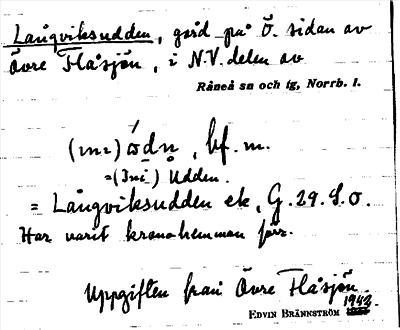 Långviksudden, gård på Ö. sidan av
Övre Flåsjön, i N.V. delen av
Råneå sn och tg, Norrb. l.
(ɩn=) ώdn̥, bf. m.
=(Inı̄) Udden.
= Långviksudden ek, G. 29. S.O.
Har varit kronohemman förr.
Uppgiften från Övre Flåsjön.
1942
EDVIN BRÄNNSTRÖM